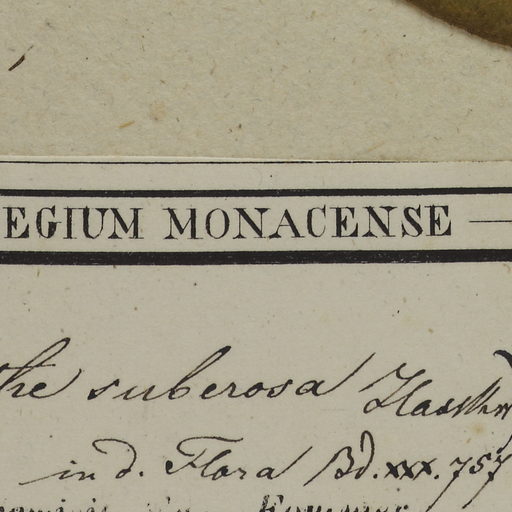 EGIUM MONACENSE
the suberosa Hasskr
in d. Flora Bd. xxx. 757